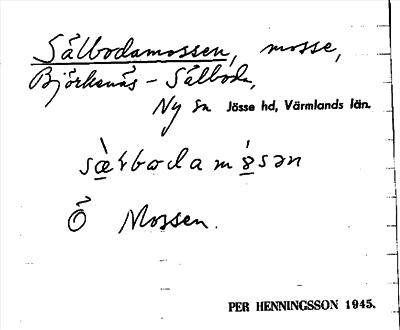 Sålbodamossen, mosse,
Björkenäs – Sålboda,
Ny sn Jösse hd, Värmlands län.
Mossen.
PER HENNINGSSON 1945.